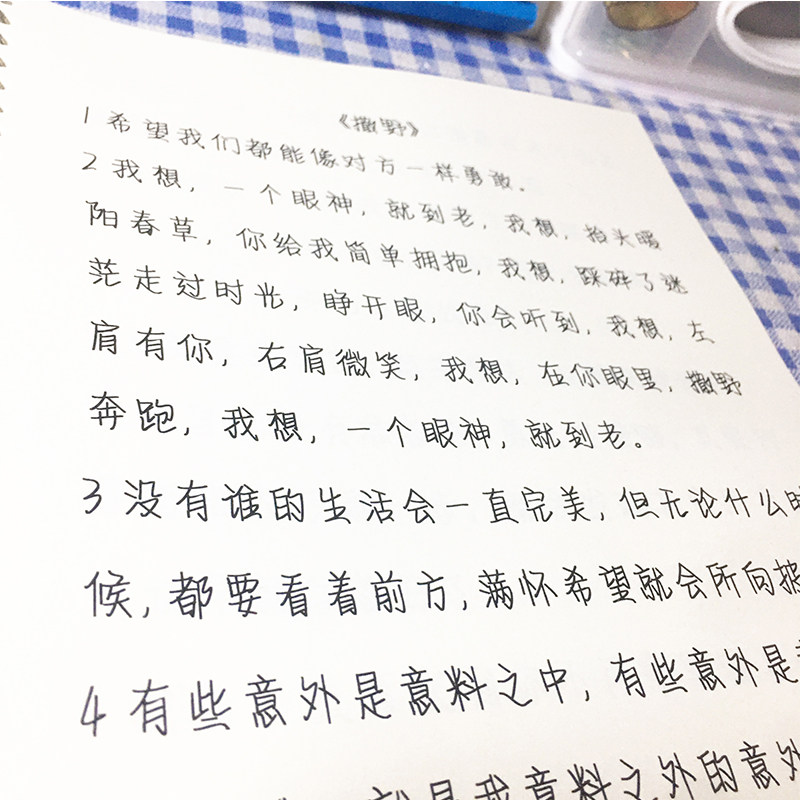 《撒野》
1 希望我们都能像对方一样勇敢。
2 我想，一个眼神，就到老，我想，抬头暖
阳春草，你给我简单拥抱，我想，踩碎了迷
茫走过时光，睁开眼，你会听到，我想，左
肩有你，右肩微笑，我想，在你眼里，撒野
奔跑，我想，一个眼神，就到老。
3 没有谁的生活会一直完美，但无论什么时
候，都要看着前方，满怀希望就会所向披
4 有些意外是意料之中，有些意外是
就是我意料之外的意外